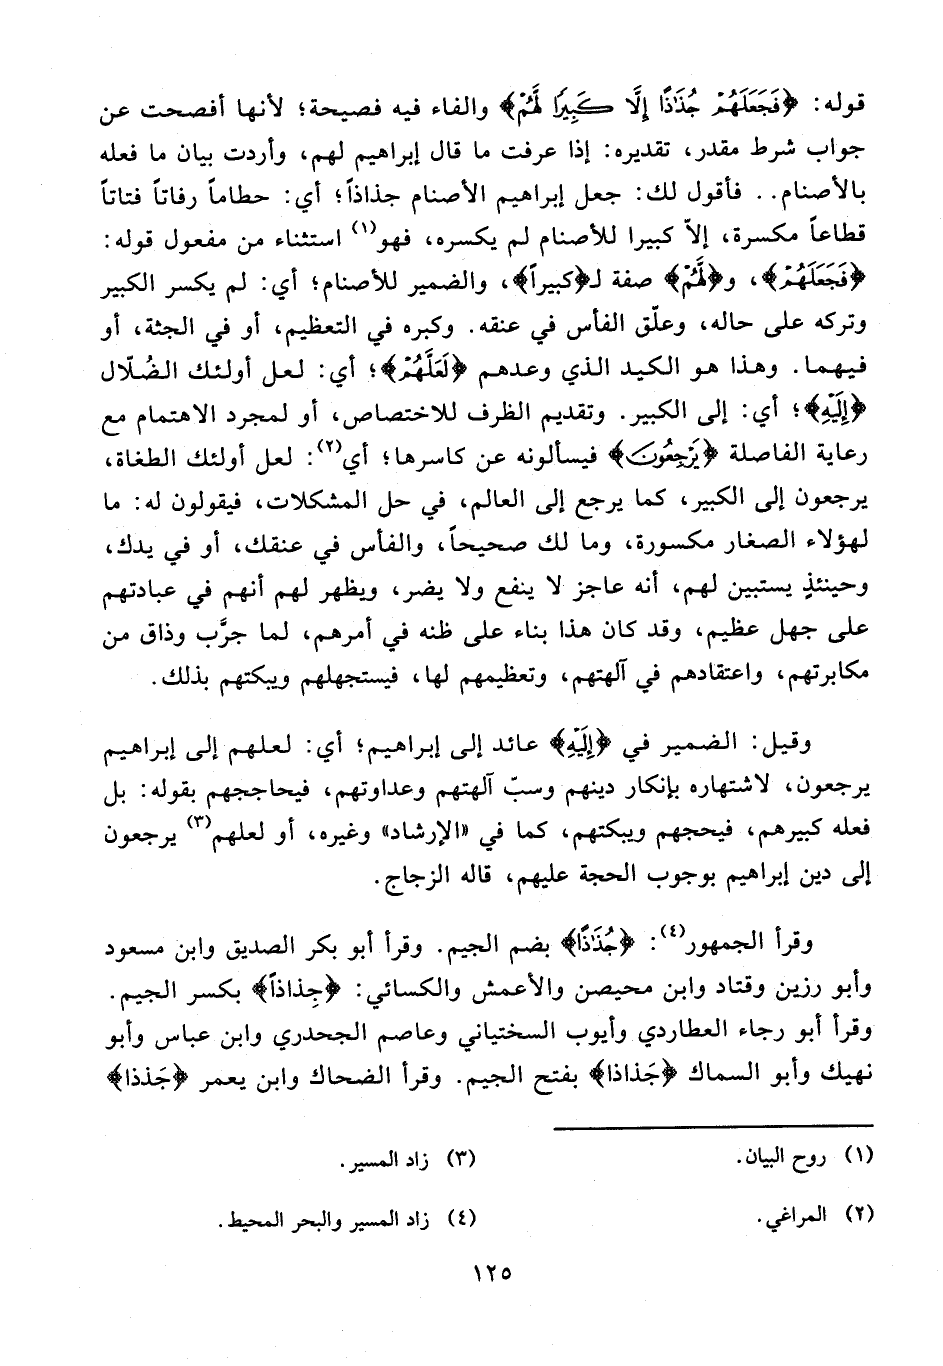 قوله: ﴿فَجَعَلَهُمْ جُذَاذًا إِلَّا كَبِيرًا لَّهُمْ﴾ والفاء فيه فصيحة؛ لأنها أفصحت عن
جواب شرط مقدر، تقديره: إذا عرفت ما قال إبراهيم لهم، وأردت بيان ما فعله
بالأصنام.. فأقول لك: جعل إبراهيم الأصنام جذاذاً؛ أي: حطاماً رفاتاً فتاتاً
قطاعاً مكسرة، إلاّ كبيرا للأصنام لم يكسره، فهو(١) استثناء من مفعول قوله:
﴿فَجَعَلَهُمْ﴾، و﴿لَّهُمْ﴾ صفة لـ﴿كبيراً﴾، والضمير للأصنام؛ أي: لم يكسر الكبير
وتركه على حاله، وعلّق الفأس في عنقه. وكبره في التعظيم، أو في الجثة، أو
فيهما. وهذا هو الكيد الذي وعدهم ﴿لَعَلَّهُمْ﴾؛ أي: لعل أولئك الضُلّال
﴿إِلَيْهِ﴾؛ أي: إلى الكبير. وتقديم الظرف للاختصاص، أو لمجرد الاهتمام مع
رعاية الفاصلة ﴿يَرْجِعُونَ﴾ فيسألونه عن كاسرها؛ أي(٢): لعل أولئك الطغاة،
يرجعون إلى الكبير، كما يرجع إلى العالم، في حل المشكلات، فيقولون له: ما
لهؤلاء الصغار مكسورة، وما لك صحيحاً، والفأس في عنقك، أو في يدك،
وحينئذٍ يستبين لهم، أنه عاجز لا ينفع ولا يضر، ويظهر لهم أنهم في عبادتهم
على جهل عظيم، وقد كان هذا بناء على ظنه في أمرهم، لما جرَّب وذاق من
مكابرتهم، واعتقادهم في آلهتهم، وتعظيمهم لها، فيستجهلهم ويبكتهم بذلك.
وقيل: الضمير في ﴿إِلَيْهِ﴾ عائد إلى إبراهيم؛ أي: لعلهم إلى إبراهيم
يرجعون، لاشتهاره بإنكار دينهم وسبّ آلهتهم وعداوتهم، فيحاججهم بقوله: بل
فعله كبيرهم، فيحجهم ويبكتهم، كما في «الإرشاد» وغيره، أو لعلهم(٣) يرجعون
إلى دين إبراهيم بوجوب الحجة عليهم، قاله الزجاج.
وقرأ الجمهور(٤): ﴿جُذَاذًا﴾ بضم الجيم. وقرأ أبو بكر الصديق وابن مسعود
وأبو رزين وقتاد وابن محيصن والأعمش والكسائي: ﴿جِذاذاً﴾ بكسر الجيم.
وقرأ أبو رجاء العطاردي وأيوب السختياني وعاصم الجحدري وابن عباس وأبو
نهيك وأبو السماك ﴿جَذاذا﴾ بفتح الجيم. وقرأ الضحاك وابن يعمر ﴿جَذذا﴾
(١) روح البيان.
(٢) المراغي.
(٣) زاد المسير.
(٤) زاد المسير والبحر المحيط.
١٢٥